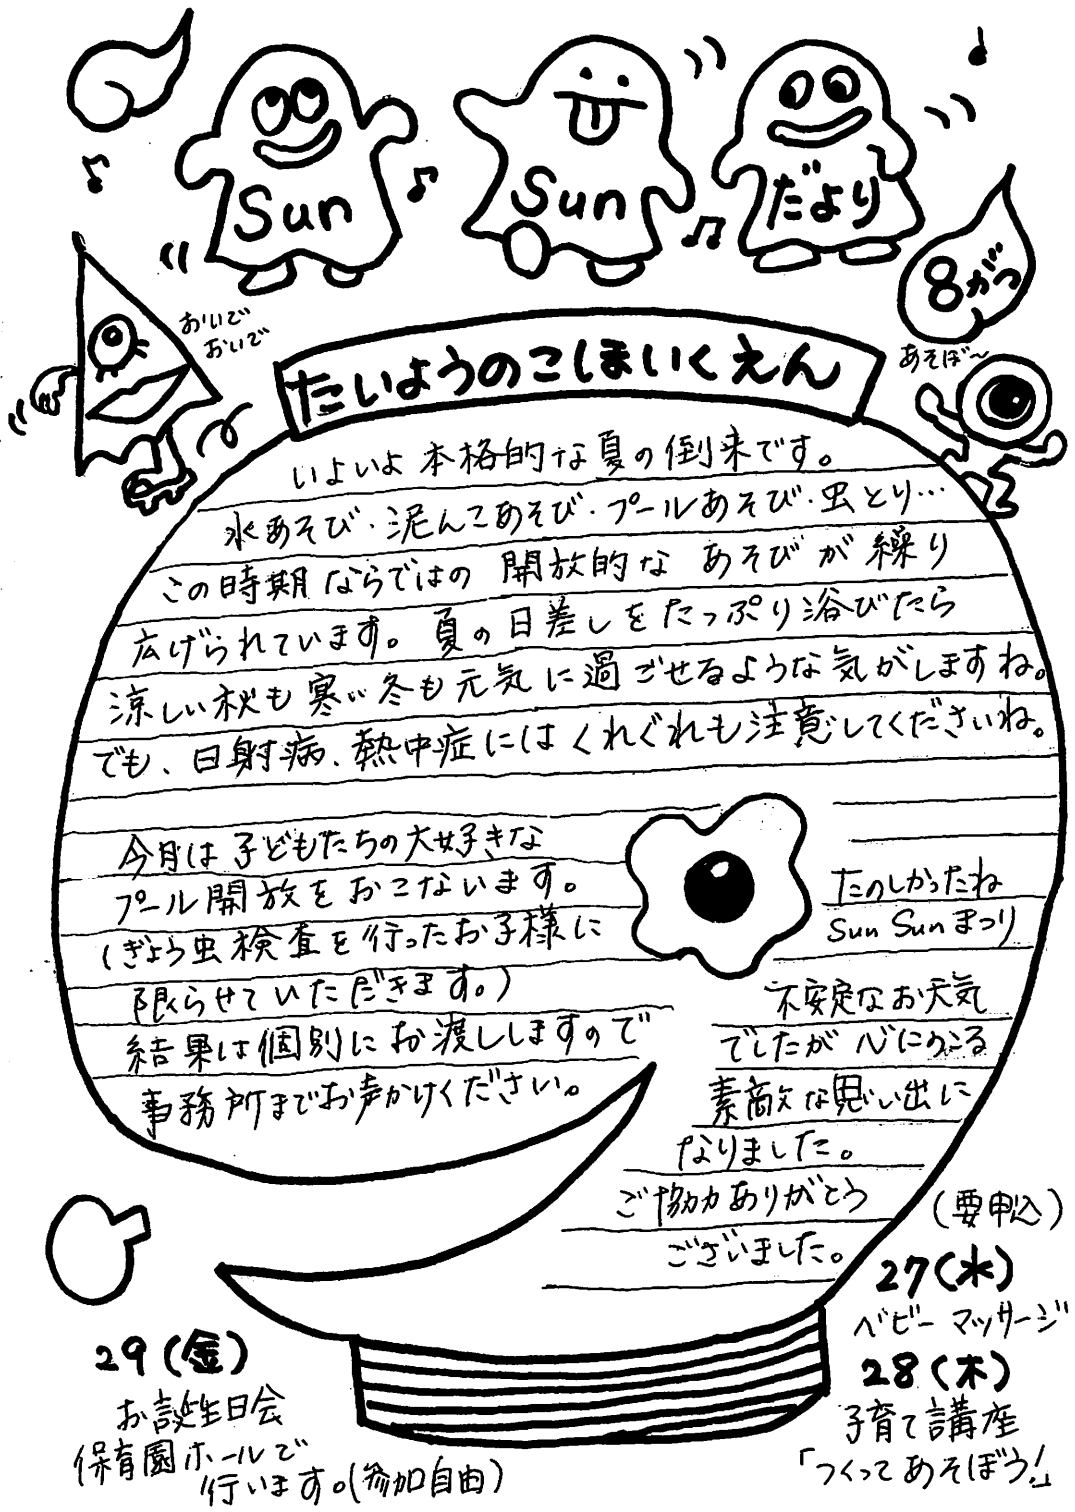 Sun Sun だより
8がつ
おいで
おいで
あそぼ〜
たいようのこほいくえん
いよいよ本格的な夏の到来です。
水あそび・泥んこあそび・プールあそび・虫とり…
この時期ならではの 開放的な あそびが繰り
広げられています。夏の日差しをたっぷり浴びたら
涼しい秋も寒い冬も元気に過ごせるような気がしますね。
でも、日射病、熱中症にはくれぐれも注意してくださいね。
今月は子どもたちの大好きな
プール開放をおこないます。
(ぎょう虫検査を行ったお子様に
限らせていただきます。)
結果は個別にお渡ししますので
事務所までお声かけください。
たのしかったね
Sun Sunまつり
不安定なお天気
でしたが心にのこる
素敵な思い出に
なりました。
ご協力ありがとう
ございました。
(要申込)
27(水)
ベビーマッサージ
28(木)
子育て講座
「つくってあそぼう!」
29(金)
お誕生日会
保育園ホールで
行います。(参加自由)